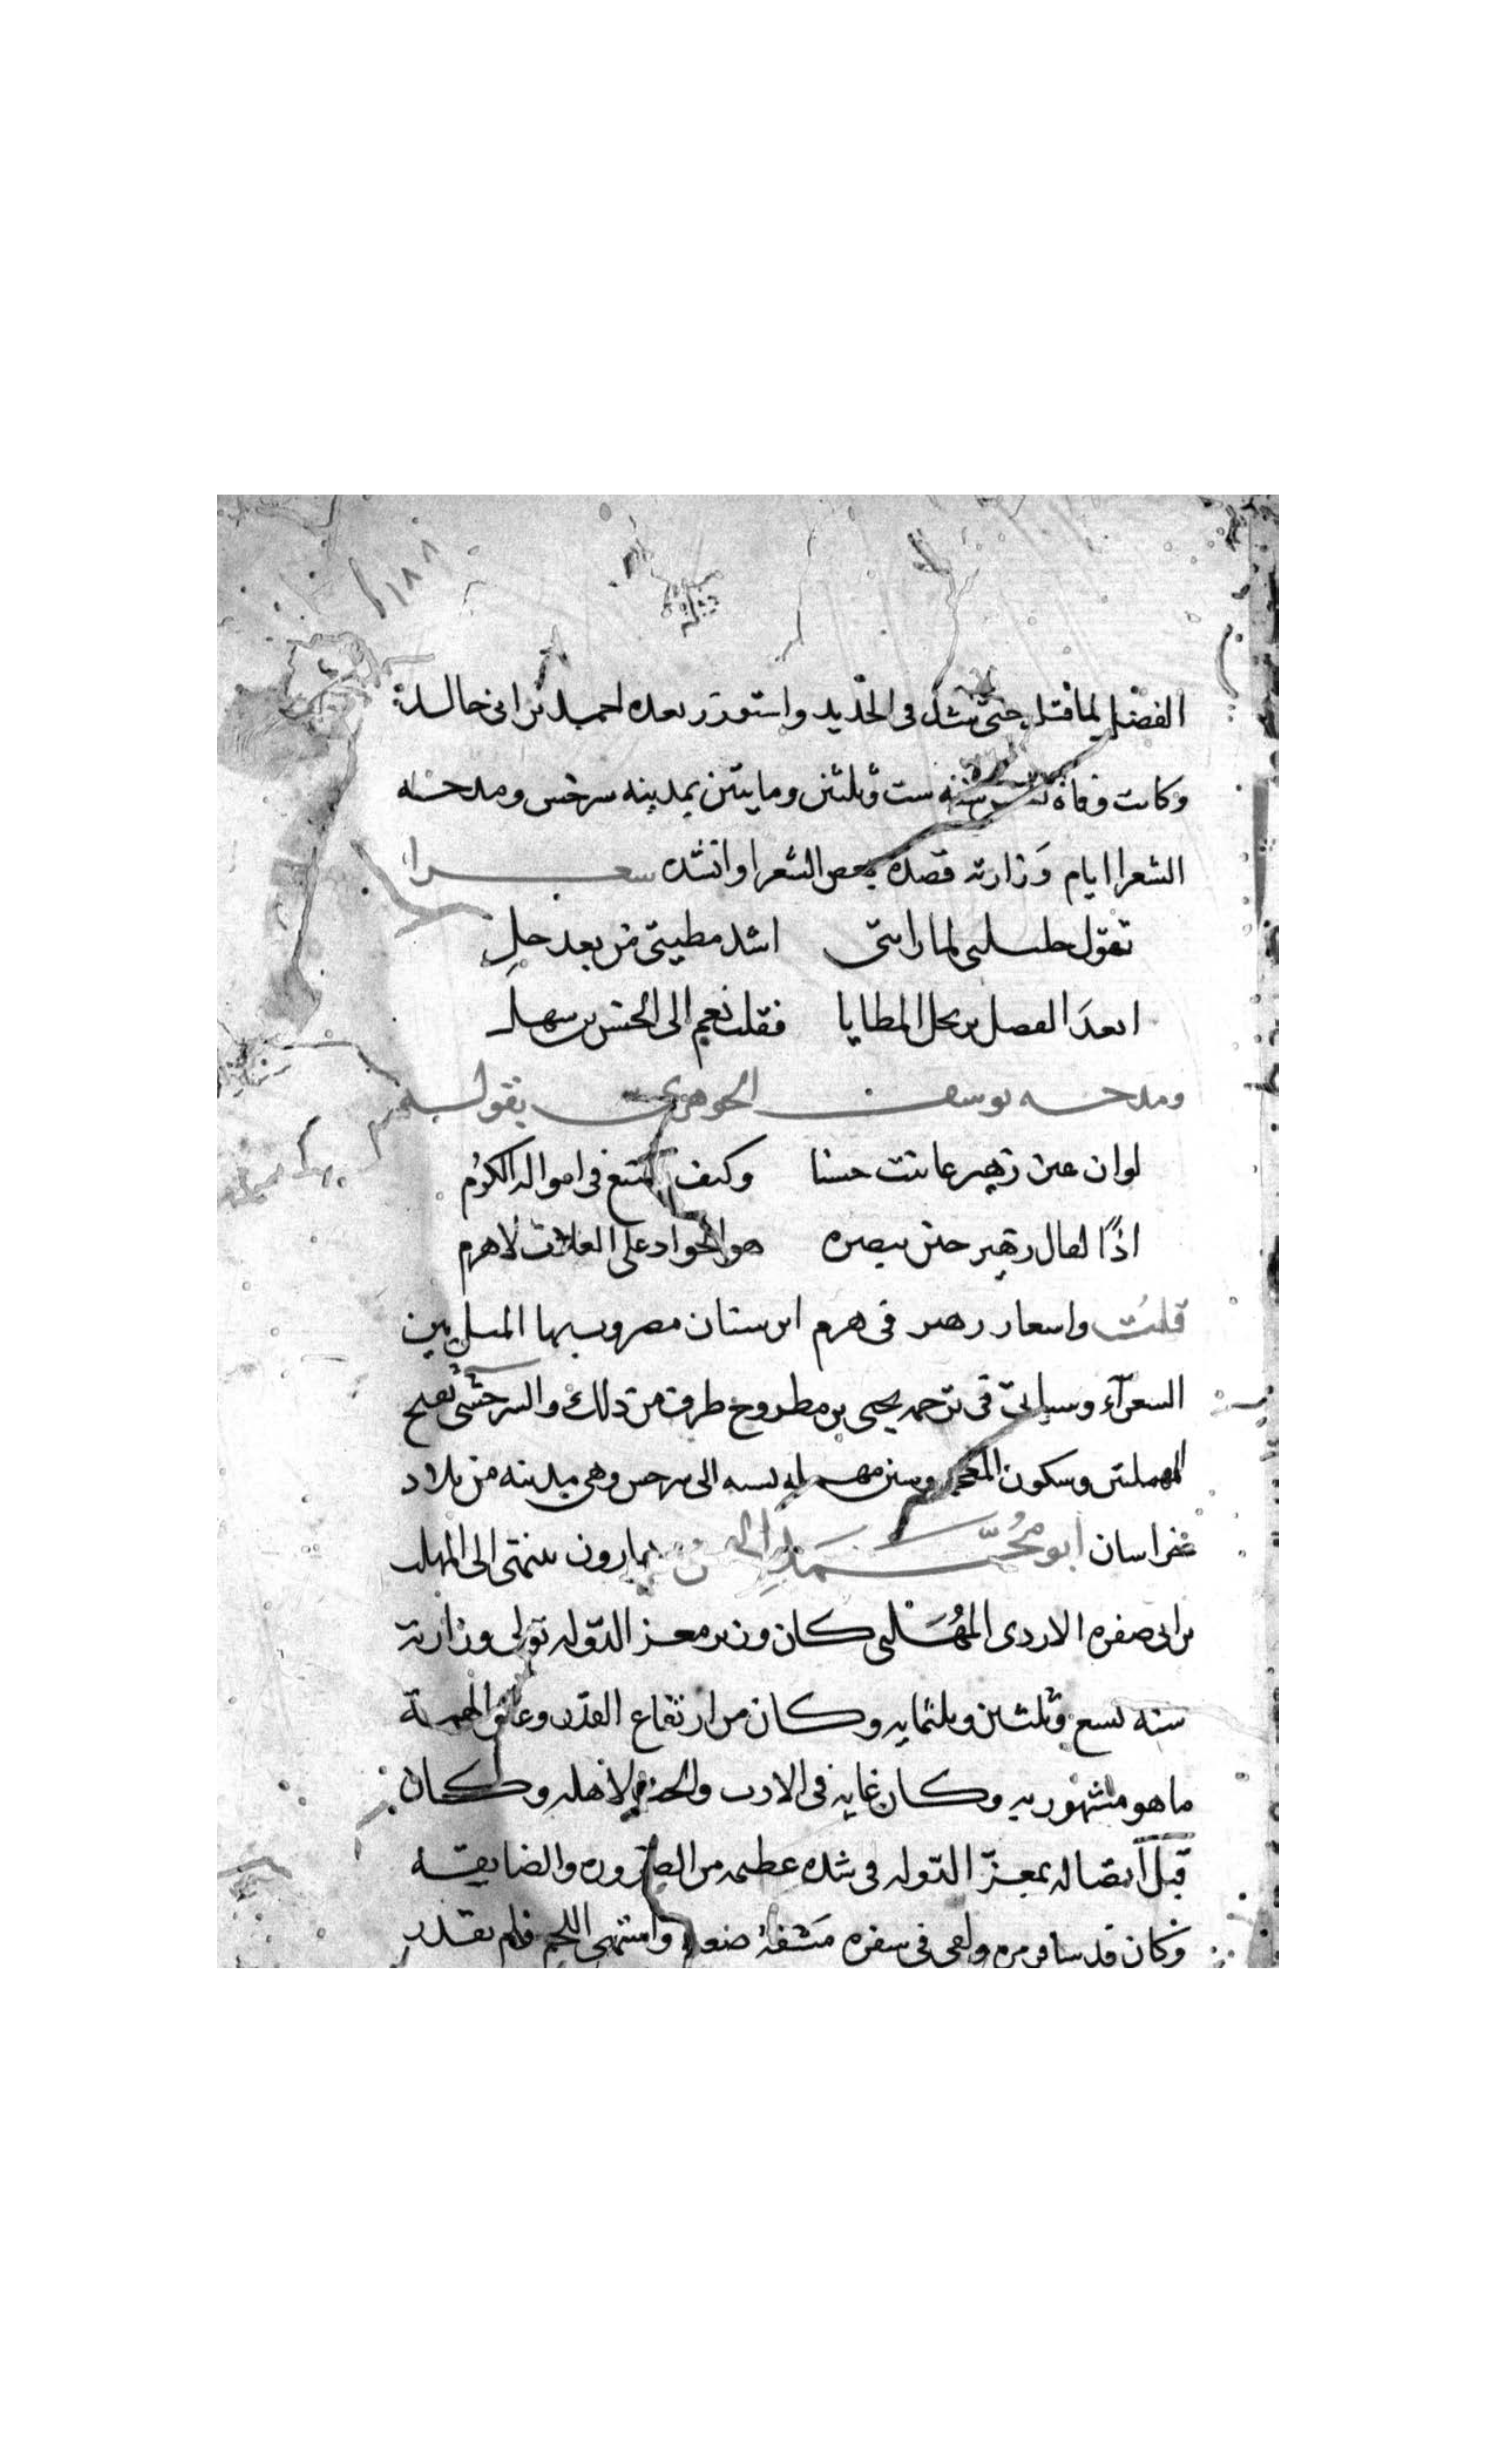 ١٨٨
الفضل لما قتل حتى شد فى الحديد واستوزر بعده احمد بن ابى خالد
وكانت وفاة سنه ست وثلثين ومايتين بمدينه سرخس ومدحه
الشعرا ايام وزارته قصده بعض الشعرا وانشده شعرا
تقول حليلتى لما راتنى اشد مطيتى من بعد حل
ابعد الفضل ترتحل المطايا فقلت نعم الى الحسن بن سهل
ومدحه يوسف الجوهرى بقوله
لو ان عين زهير عاينت حسنا وكيف يصنع فى امواله الكرم
اذًا لقال زهير حين يبصره هو الجواد على العلات لا هرم
قلت واشعار زهير فى هرم ابن سنان مضروب بها المثل بين
الشعرآء وسياتى فى ترجمه يحيى بن مطروح طرف من ذلك والسرخسى بفتح
المهملتين وسكون المعجمه وسين مهمله نسبه الى سرخس وهى مدينه من بلاد
خراسان ابو مُحَمَّد الحسن بن هارون ينتهى الى المهلب
بن ابى صفره الازدى المُهَلبى كان وزير معز الدوله تولى وزارته
سنه تسع وثلثين وثلثمايه وكان من ارتفاع القدر وعلو الهمة
ما هو مشهور به وكان غايه فى الادب والمحبه لاهله وكان
قبل اتصاله بمعز الدوله فى شده عظيمه من الضروره والضايقه
وكان قد سافر مره ولقى فى سفره مشقة صعبه واشتهى اللحم فلم يقدر